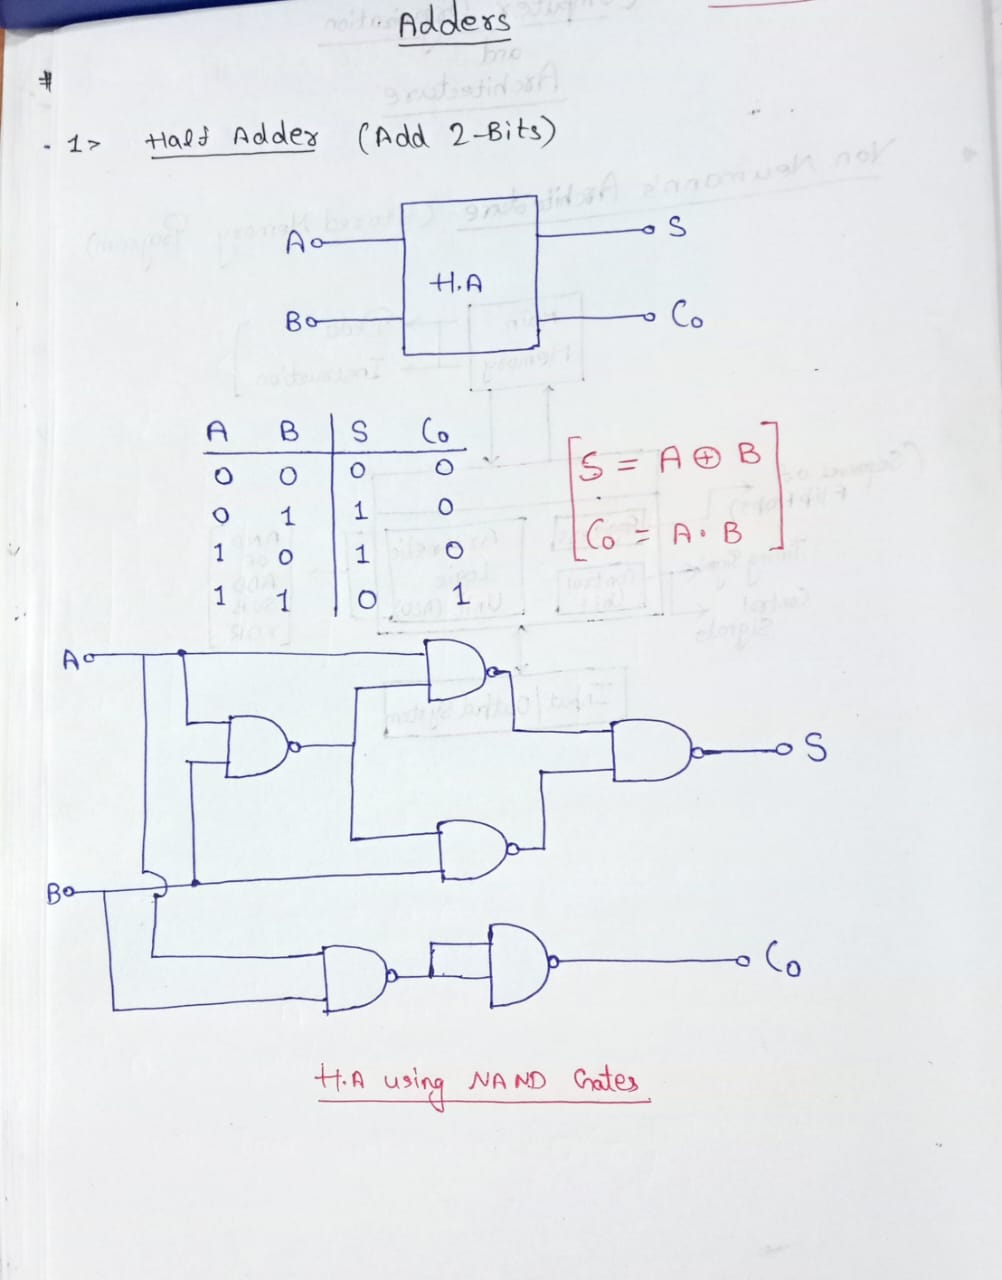 Adders
#
1> Half Adder (Add 2-Bits)
A S
H.A
B Co
A B S Co
0 0 0 0
0 1 1 0
1 0 1 0
1 1 0 1
[S = A ⊕ B
Co = A . B]
A
S
B
Co
H.A using NAND Gates